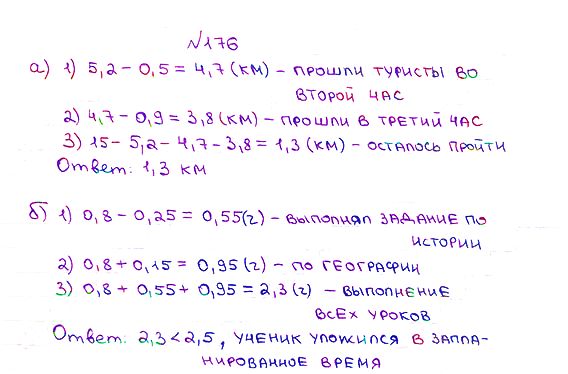 №176
а) 1) 5,2 – 0,5 = 4,7 (км) – прошли туристы во
второй час
2) 4,7 – 0,9 = 3,8 (км) – прошли в третий час
3) 15 – 5,2 – 4,7 – 3,8 = 1,3 (км) – осталось пройти
Ответ: 1,3 км
б) 1) 0,8 – 0,25 = 0,55 (г) – выполнял задание по
истории
2) 0,8 + 0,15 = 0,95 (г) – по географии
3) 0,8 + 0,55 + 0,95 = 2,3 (г) – выполнение
всех уроков
Ответ: 2,3 < 2,5, ученик уложился в запла-
нированное время